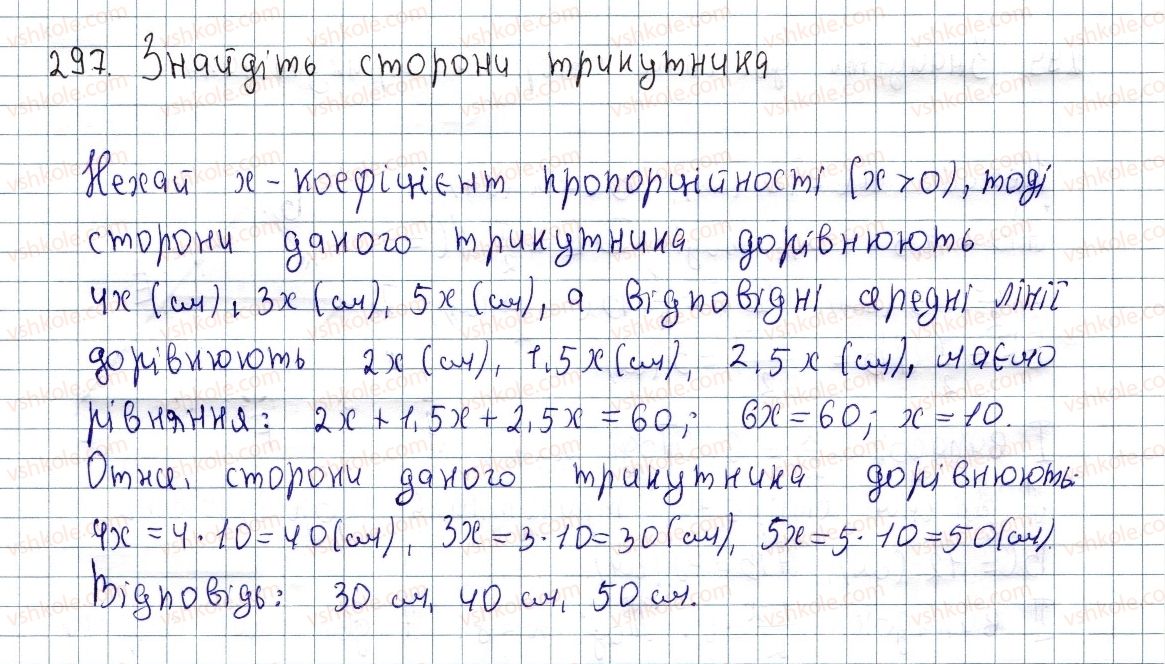 297. Знайдіть сторони трикутника
Нехай x - коефіцієнт пропорційності (x > 0), тоді
сторони даного трикутника дорівнюють
4x (см), 3x (см), 5x (см), а відповідні середні лінії
дорівнюють 2x (см), 1,5x (см), 2,5x (см), маємо
рівняння: 2x + 1,5x + 2,5x = 60; 6x = 60; x = 10.
Отже, сторони даного трикутника дорівнюють:
4x = 4 · 10 = 40 (см), 3x = 3 · 10 = 30 (см), 5x = 5 · 10 = 50 (см).
Відповідь: 30 см, 40 см, 50 см.